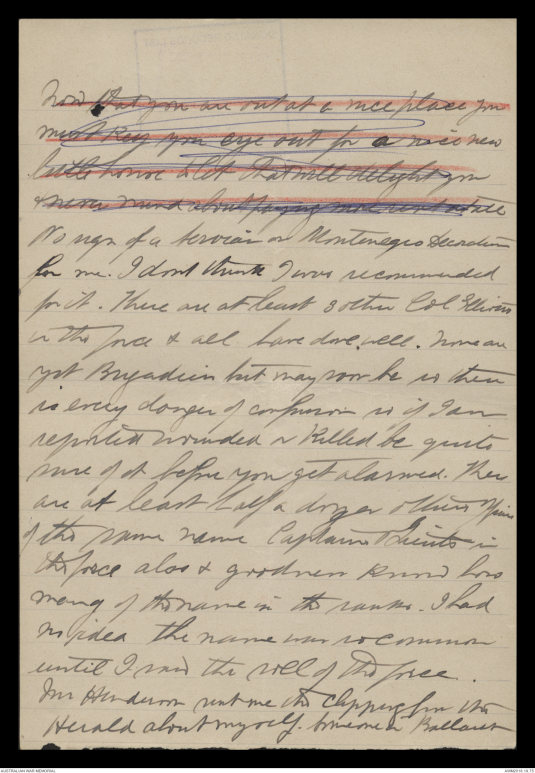 Now that you are out at a nice place you
must keep your eye out for a nice new
little house to let that will delight you
& never mind about paying
No sign of a Servian or Montenegro Decoration
for me. I dont think I was recommended
for it. There are at least 3 other Col Elliotts
in the force & all have done well. None are
yet Brigadiers but may soon be so there
is every danger of confusion so if I am
reported wounded or killed be quite
sure of it before you get alarmed. There
are at least half a dozen other
of the same name Captains & Lieuts in
the force also & goodness knows how
many of the name in the ranks. I had
no idea the name was so common
until I saw the roll of the force.
Mr Henderson sent me the clipping from the
Herald about myself. Someone in Ballarat
AUSTRALIAN WAR MEMORIAL